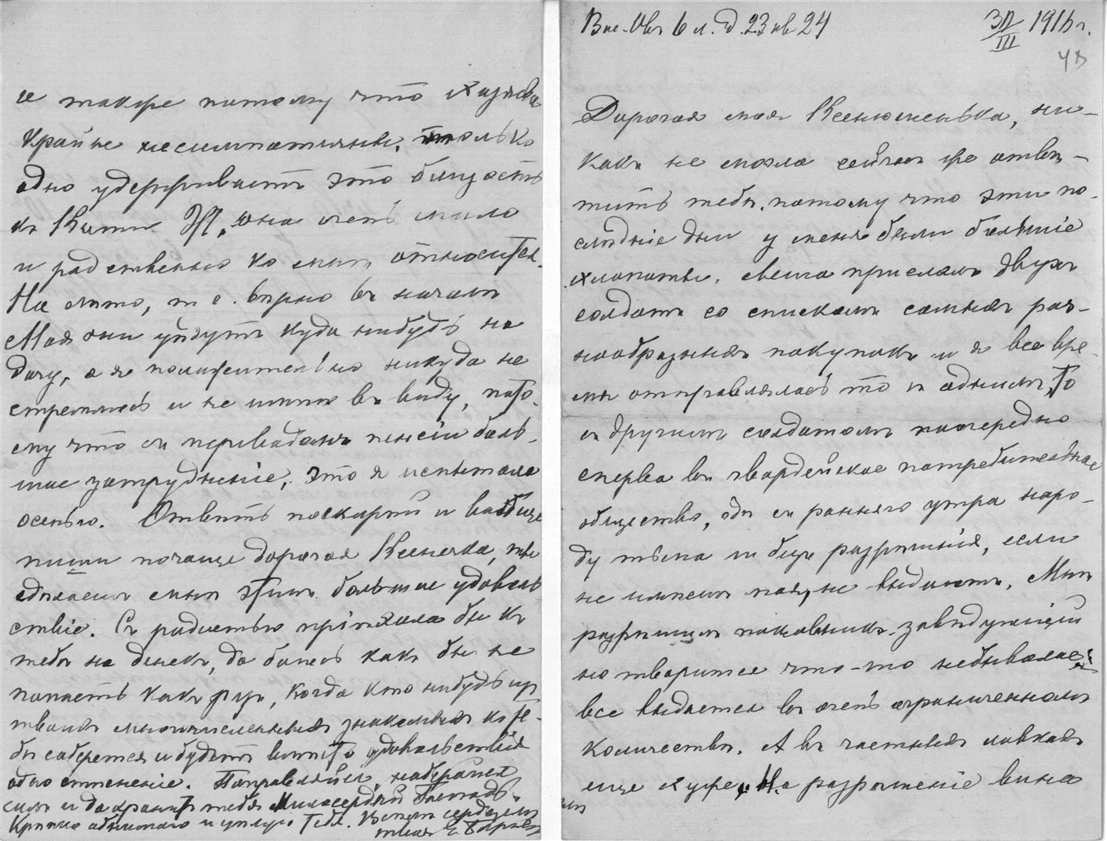 и также потому что хозяева
крайне несимпатичны, только
одно удерживаетъ это близость
къ Кати. И, она очень мило
и родственно ко мнѣ относится.
На лѣто, т. е. вѣрно въ началѣ
Мая они уѣдутъ куда нибудь на
дачу, а я положительно никуда не
стремлюсь и не имѣю въ виду, пото-
му что съ переводомъ пенсіи боль-
шое затрудненіе, это я испытала
осенью. Отвѣть поскорѣй и вообще
пиши почаще дорогая Ксенечка, ты
сдѣлаешь мнѣ этимъ большое удоволь
ствіе. Съ радостью пріѣхала бы къ
тебѣ на денекъ, да боюсь какъ бы не
попасть какъ разъ, когда кто нибудь из
твоихъ многочисленныхъ знакомыхъ къ те-
бѣ соберется и будетъ вмѣсто удовольствія
одно стѣсненіе. Поправляйся, набирайся
силъ и да хранитъ тебя Милосердый Господь.
Крѣпко обнимаю и цѣлую тебя. Всѣмъ сердцемъ
твоя Е.
Вас. Овъ 6 л. д. 23 кв 24
31/III 1916 г.
Дорогая моя Ксенюшенька, ни-
какъ не могла сейчасъ же отвѣ-
тить тебѣ, потому что эти по-
слѣдніе дни у меня были большіе
хлопоты. прислалъ двухъ
солдатъ со спискомъ самыхъ раз-
нообразныхъ покупокъ и я все вре-
мя отправлялась то съ однимъ, то
съ другимъ солдатомъ поочередно
сперва въ гвардейское потребительное
общество, гдѣ съ ранняго утра наро-
ду тьма и безъ разрѣшенія, если
не имѣешь пая, не выдаютъ. Мнѣ
разрѣшилъ полковникъ завѣдующій
но творится что-то небывалое:
все выдается въ очень ограниченномъ
количествѣ. А въ частныхъ лавкахъ
еще хуже. На разрѣшеніе вина